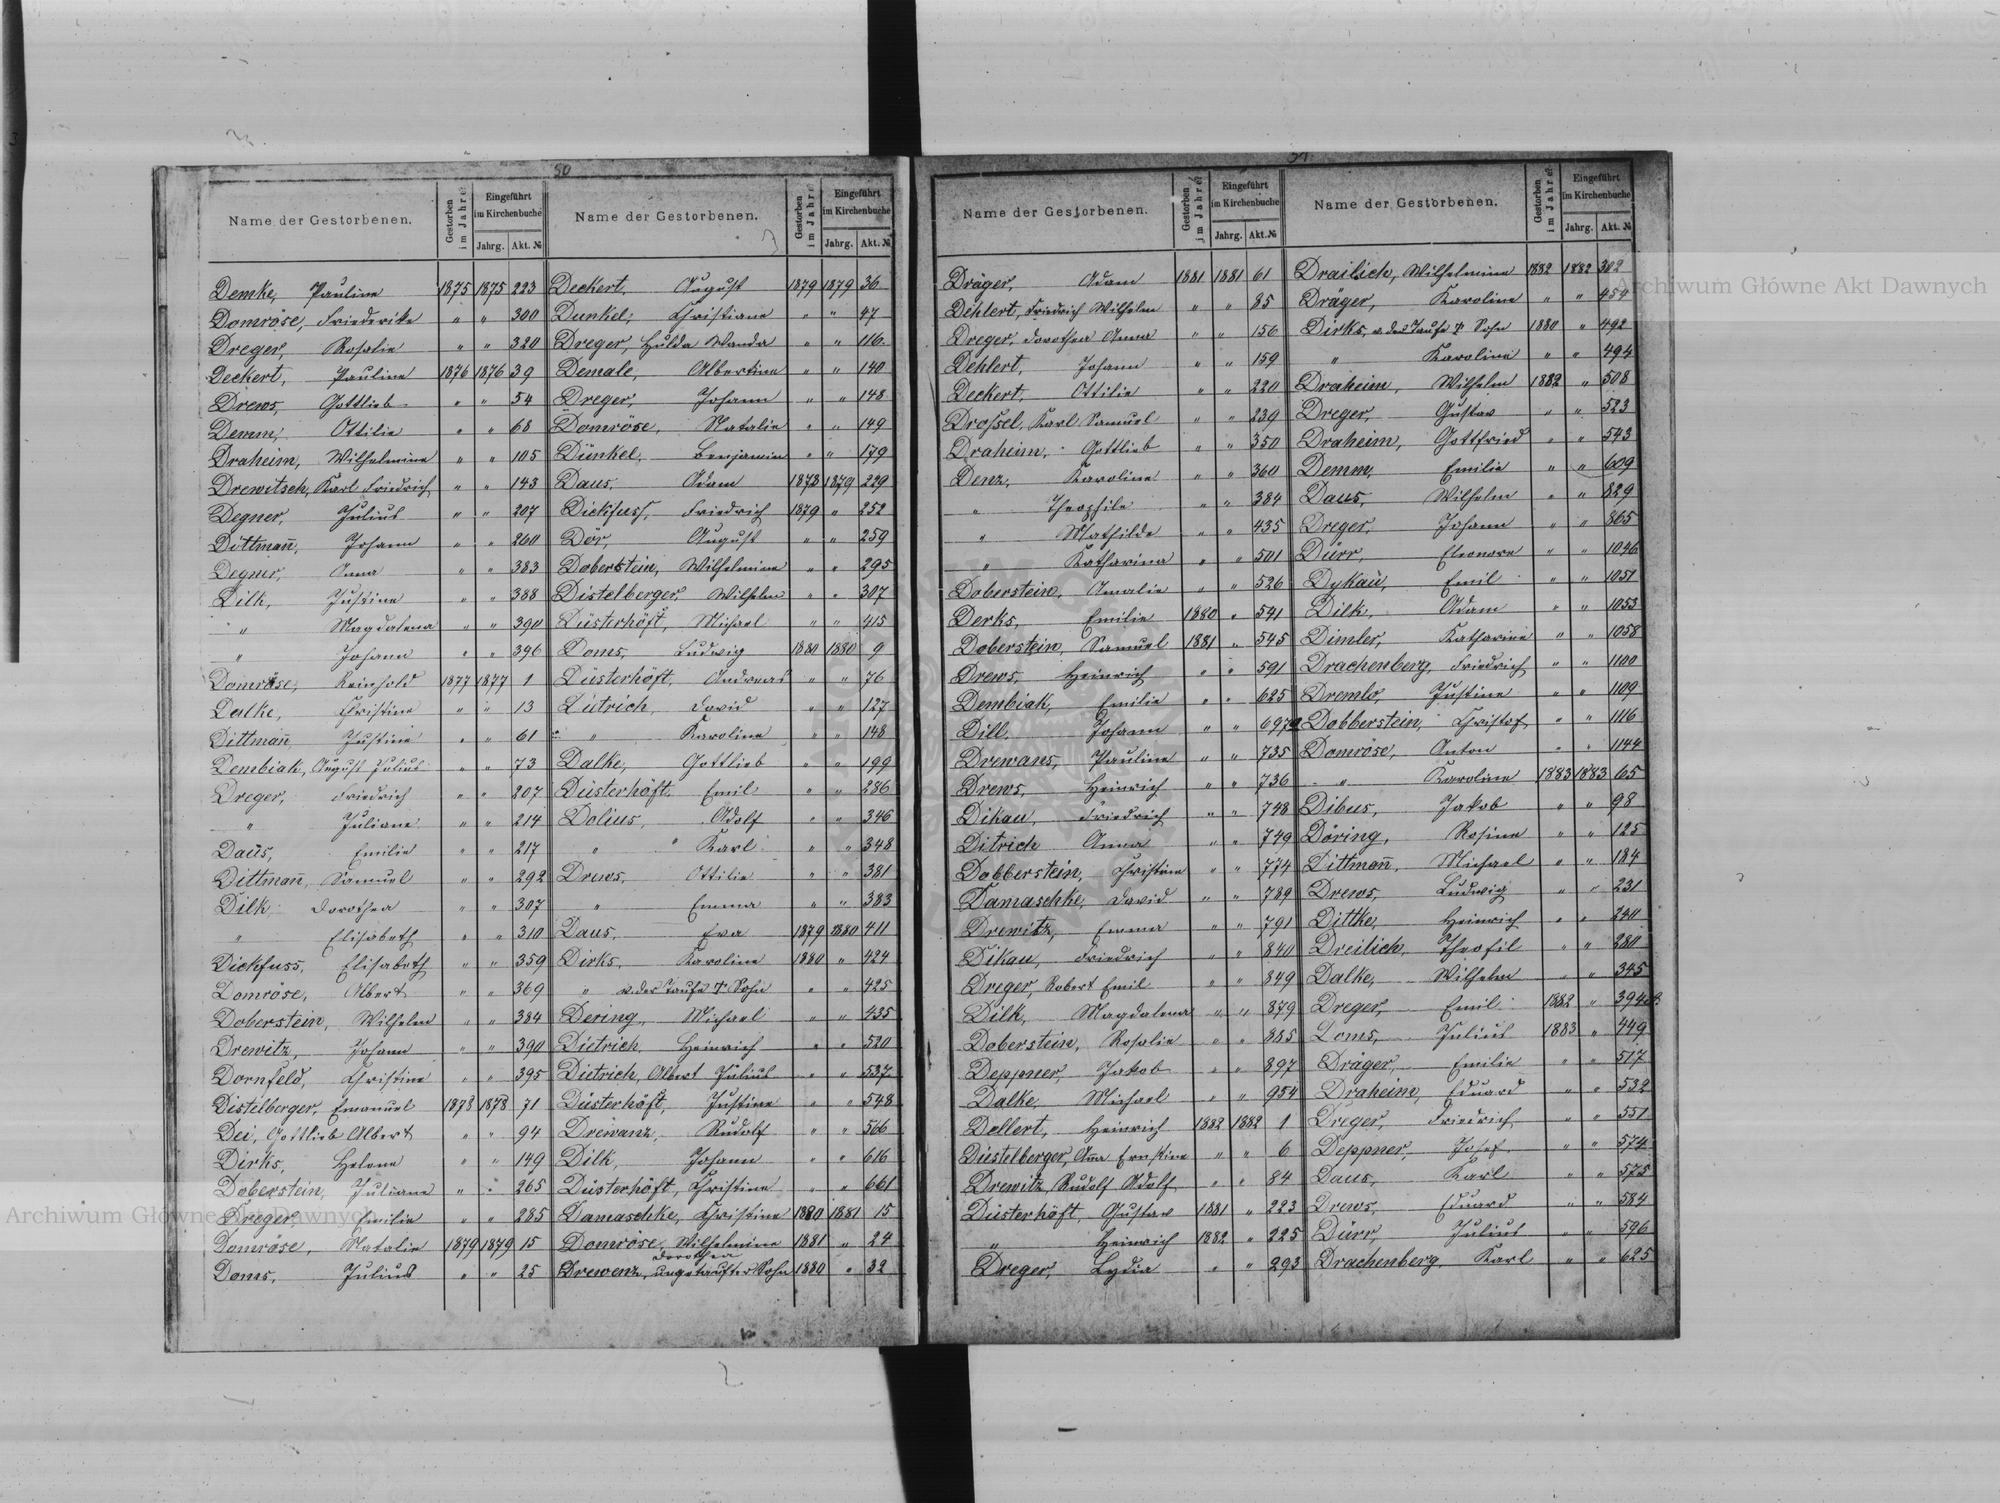 50
Name der Gestorbenen. Gestorben im Jahre: Eingeführt im Kirchenbuche Jahrg. Akt. №
Demke, Pauline 1875 1875 223
Domröse, Friederike " " 300
Dreger, Rosalie " " 320
Deckert, Pauline 1876 1876 39
Drews, Gottlieb " " 54
Demm, Ottilie " " 68
Draheim, Wilhelmine " " 105
Drewitsch, Karl Friedrich " " 143
Degner, Julius " " 207
Dittmañ, Johann " " 260
Degner, Anna " " 383
Dilk, Justine " " 388
" Magdalena " " 390
" Johann " " 396
Domröse, Reinhold 1877 1877 1
Dalke, Christine " " 13
Dittmañ, Justine " " 61
Dembiak, August Julius " " 73
Dreger, Friedrich " " 207
" Juliane " " 214
Daus, Emilie " " 217
Dittmañ, Samuel " " 292
Dilk, Dorothea " " 307
" Elisabeth " " 310
Dickfuss, Elisabeth " " 359
Domröse, Albert " " 369
Doberstein, Wilhelm " " 384
Drewitz, Johann " " 390
Dornfeld, Christine " " 395
Distelberger, Emanuel 1878 1878 71
Dei, Gottlieb Albert " " 94
Dirks, Helene " " 149
Doberstein, Juliane " " 265
Dreger, Emilie " " 285
Domröse, Natalie 1879 1879 15
Doms, Julius " " 25
Name der Gestorbenen. Gestorben im Jahre Eingeführt im Kirchenbuche Jahrg. Akt. №
Deckert, August 1879 1879 36
Dunkel, Christiane " " 47
Dreger, Hulda Wanda " " 116
Demale, Albertine " " 140
Dreger, Johann " " 148
Domröse, Natalie " " 149
Dünkel, Benjamin " " 179
Daus, Adam 1878 1879 229
Dickfuss, Friedrich 1879 " 252
Dör, August " " 259
Doberstein, Wilhelmine " " 295
Distelberger, Wilhelm " " 307
Düsterhöft, Michael " " 415
Doms, Ludwig 1880 1880 9
Düsterhöft, Andreas " " 76
Dütrich, David " " 127
" Karoline " " 148
Dalke, Gottlieb " " 199
Düsterhöft, Emil " " 286
Dolius, Adolf " " 346
" " Karl " " 348
Drews, Ottilie " " 381
" Emma " " 383
Daus, Eva 1879 1880 411
Dirks, Karoline 1880 " 424
" v. der Taufe † Sohn " " 425
Dering, Michael " " 435
Dietrich, Heinrich " " 520
Dietrich, Albert Julius " " 537
Düsterhöft, Justine " " 548
Drewanz, Rudolf " " 566
Dilk, Johann " " 616
Düsterhöft, Christine " " 661
Damaschke, Christine 1880 1881 15
Domröse, Wilhelmine Dorothea 1881 " 24
Drewenz, ungetaufter Sohn 1880 " 32
51
Name der Gestorbenen. Gestorben im Jahre Eingeführt im Kirchenbuche Jahrg. Akt. №
Dräger, Adam 1881 1881 61
Dehlert, Friedrich Wilhelm " " 85
Dreger, Dorothea Anna " " 156
Dehlert, Johann " " 159
Deckert, Ottilie " " 220
Drossel, Karl Samuel " " 239
Draheim, Gottlieb " " 350
Denz, Karoline " " 360
" Theophile " " 384
" Mathilde " " 435
" Katharina " " 501
Doberstein, Amalie " " 526
Derks, Emilie 1880 " 541
Doberstein, Samuel 1881 " 545
Drews, Heinrich " " 591
Dembiak, Emilie " " 625
Dill, Johann " " 697a
Drewans, Pauline " " 735
Drews, Heinrich " " 736
Dikau, Friedrich " " 748
Ditrich Anna " " 749
Dobberstein, Christine " " 774
Damaschke, David " " 789
Drewitz, Emma " " 791
Dikau, Friedrich " " 840
Dreger, Robert Emil " " 849
Dilk, Magdalena " " 879
Doberstein, Rosalie " " 885
Deppner, Jakob " " 897
Dalke, Michael " " 954
Dellert, Heinrich 1882 1882 1
Distelberger, Anna Ernstine " " 6
Drewitz, Rudolf Adolf " " 84
Düsterhöft, Gustav 1881 " 223
" Heinrich 1882 " 225
Dreger, Lydia " " 293
Name der Gestorbenen. Gestorben im Jahre Eingeführt im Kirchenbuche Jahrg. Akt. №
Drailich, Wilhelmine 1882 1882 302
Dräger, Karoline " " 454
Dirks, v. der Taufe † Sohn 1880 " 492
" Karoline " " 494
Draheim, Wilhelm 1882 " 508
Dreger, Gustav " " 523
Draheim, Gottfried " " 543
Demm, Emilie " " 609
Daus, Wilhelm " " 829
Dreger, Johann " " 865
Dürr, Eleonore " " 1046
Dykau, Emil " " 1051
Dilk, Adam " " 1055
Dimler, Katharine " " 1058
Drachenberg, Friedrich " " 1100
Dremlo, Justine " " 1109
Dobberstein, Christof " " 1116
Domröse, Anton " " 1144
" Karoline 1883 1883 65
Dibus, Jakob " " 98
Döring, Rosine " " 125
Dittmañ, Michael " " 184
Drews, Ludwig " " 231
Dittke, Heinrich " " 240
Dreilich, Theofil " " 280
Dalke, Wilhelm " " 345
Dreger, Emil 1882 " 394
Doms, Julius 1883 " 449
Dräger, Emilie " " 517
Draheim, Eduard " " 532
Dreger, Friedrich " " 551
Deppner, Josef " " 574
Daus, Karl " " 575
Drews, Eduard " " 584
Dürr, Julius " " 596
Drachenberg, Karl " " 625
Archiwum Główne Akt Dawnych
Archiwum Główne Akt Dawnych